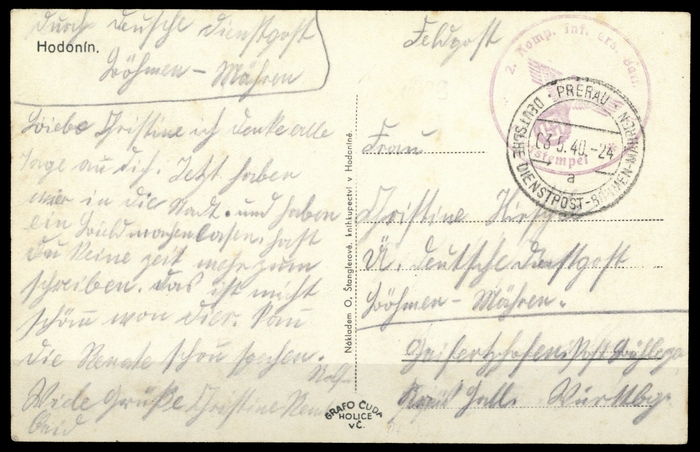 durch Deutsche Dienstpost
Hodonín.
Böhmen - Mähren
Liebe Christine ich denke alle
Tage an dich. Jetzt haben
wir in die Stadt. und haben
ein Bild machen lassen. hast
du keine zeit mehr zum
schreiben. das ist nicht
schön von dier. kan
die Renate schon sprechen.
Viele Grüße Christine
beid
Nákladem O. Štanglerové, knihkupectví v Hodoníně.
GRAFO ČUDA
HOLICE
VČ.
Feldpost
2. Komp. Inf. Ers. Batl.
stempel
PRERAU
03.5.40.-24
a
DEUTSCHE DIENSTPOST-BÖHMEN-MÄHREN
Frau
Christine
d. deutsche Dienstpost
Böhmen - Mähren.
Post
Hall Württbg